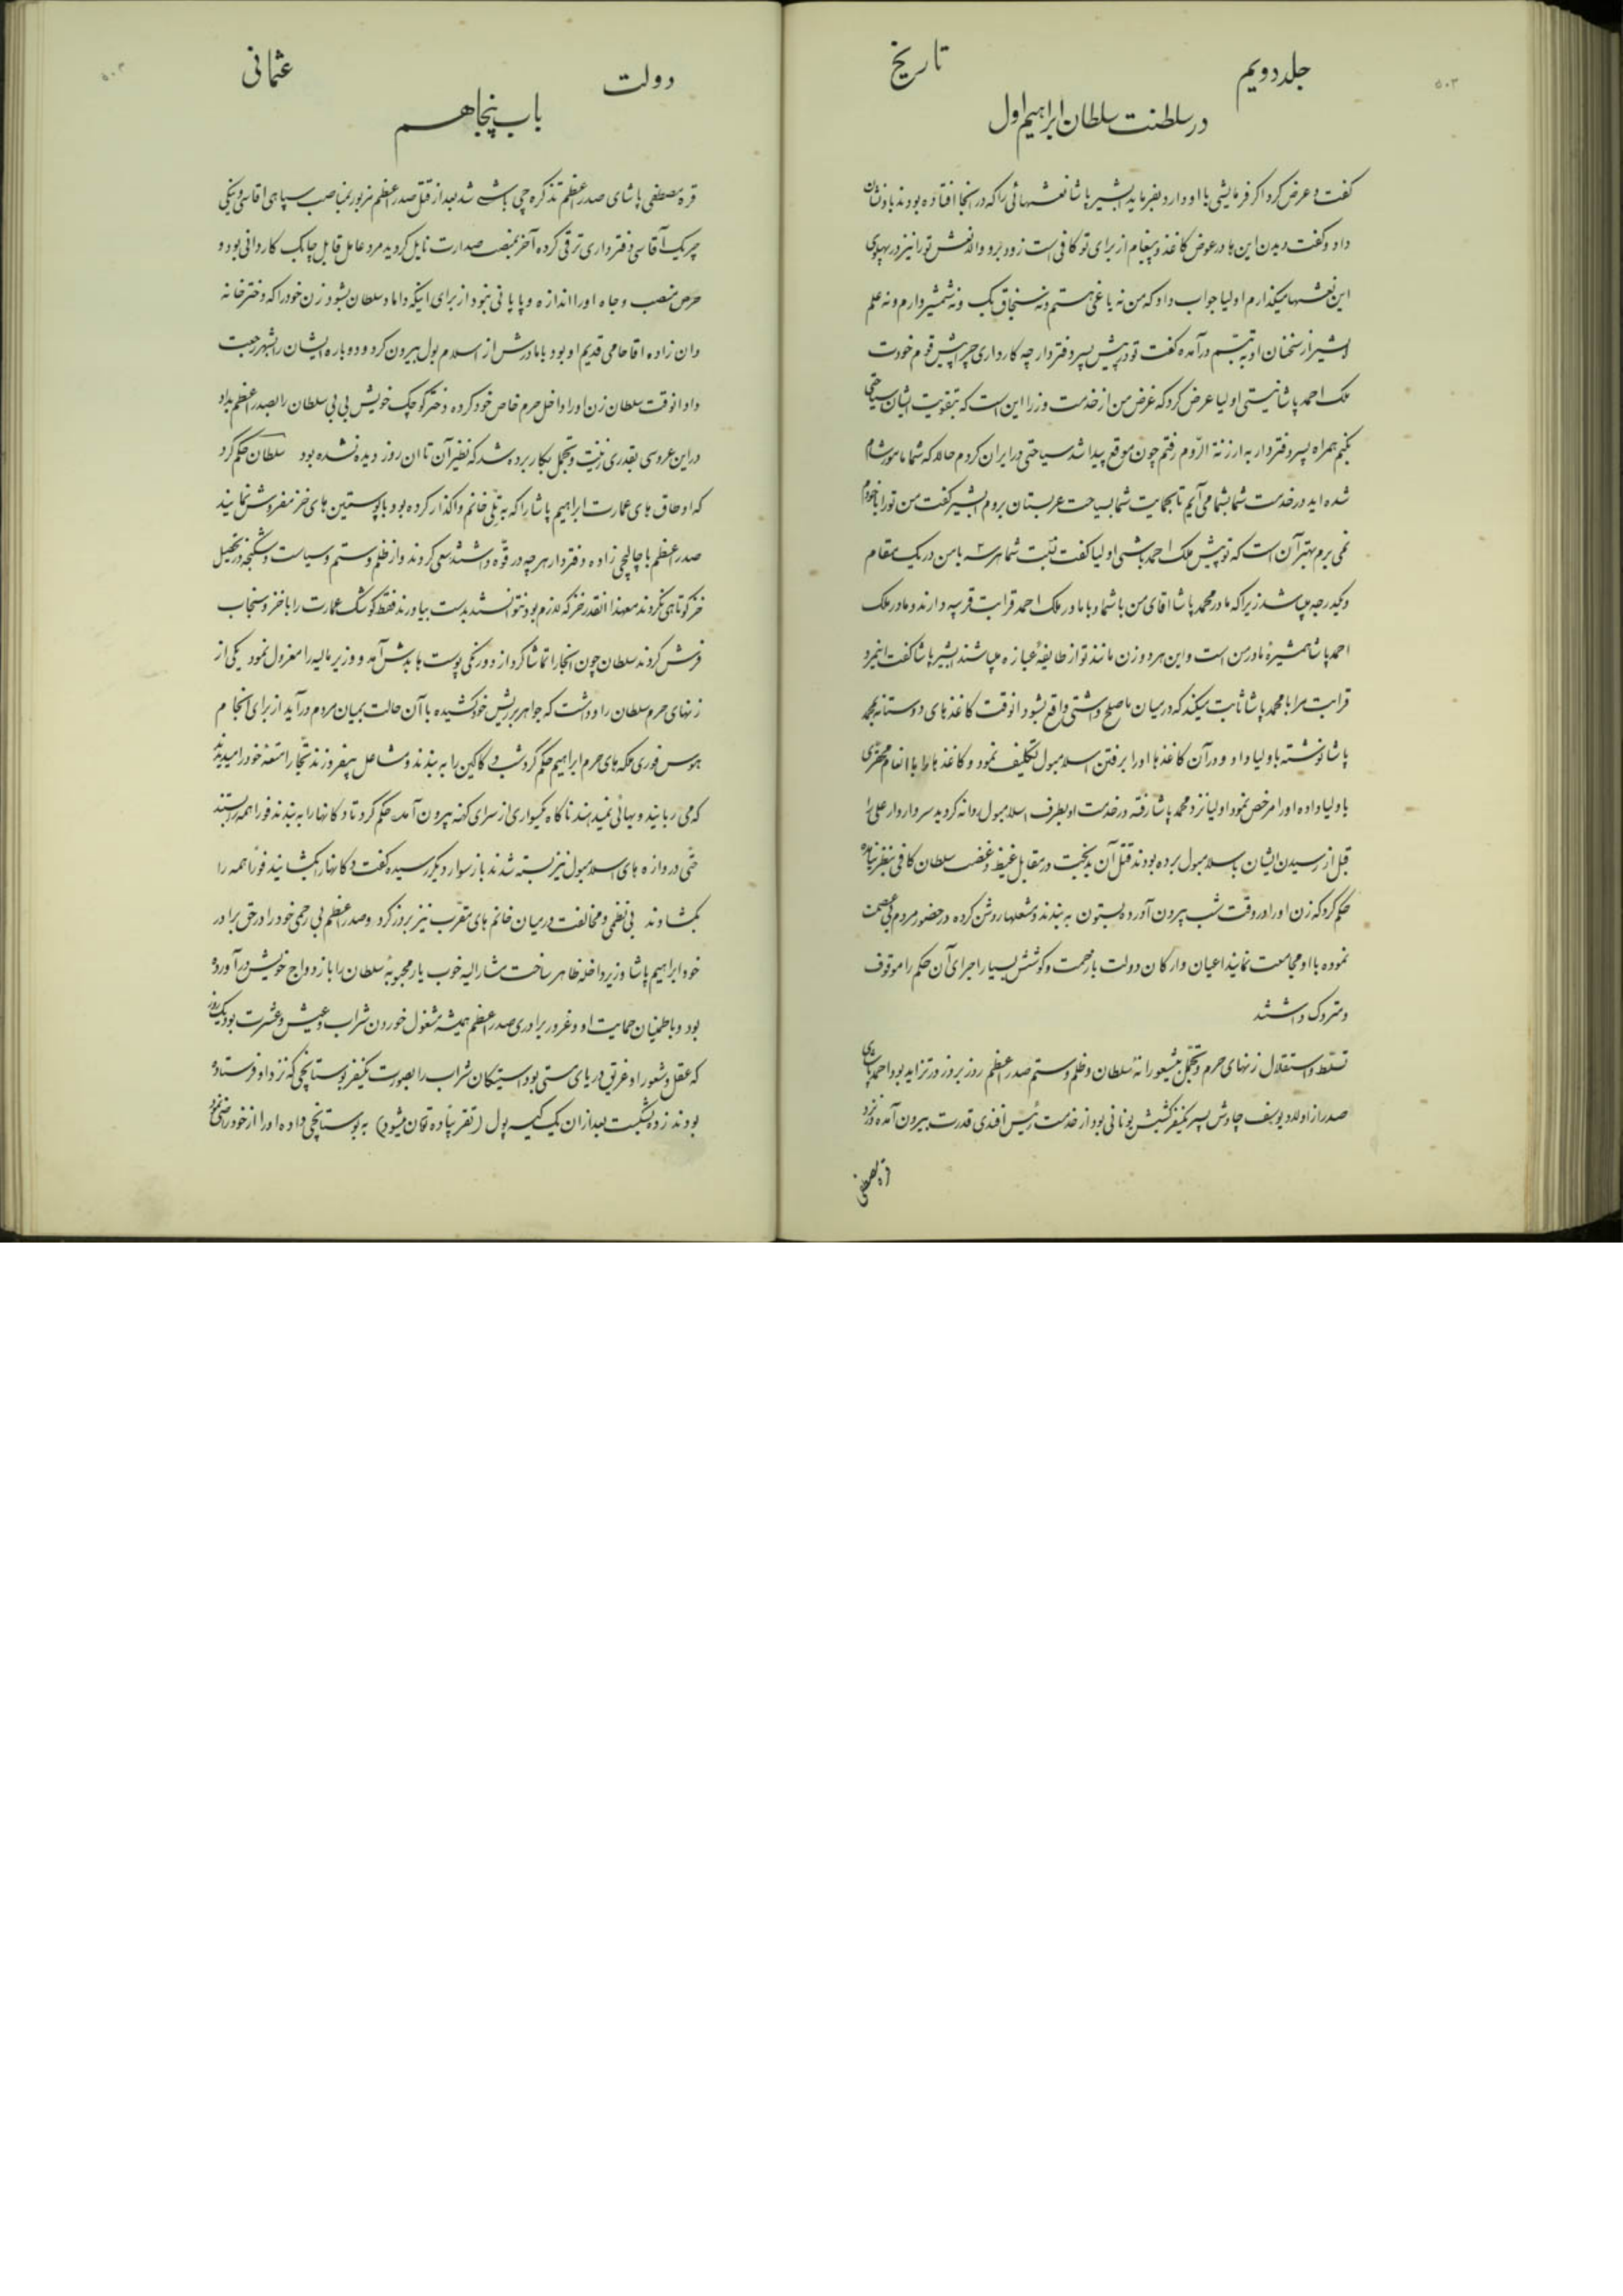 ۵۰۳
جلد دویم
تاریخ
در سلطنت سلطان ابراهیم اول
گفت و عرض کرد اگر فرمایشی با او دارد بفرماید بشیر پاشا نعشهائی را که در انجا افتاده بودند باو نشان
داد و گفت دیدن این ها در عوض کاغذ و پیغام از برای تو کافی است زود برو والا نعش تو را نیز در پهلوی
این نعشها میگذارم اولیا جواب داد که من نه یاغی هستم و نه سنجاق بک و نه شمشیر دارم و نه علم
بشیر از سخنان او به تبسّم درآمده گفت تو در پیش پسر دفتردار چه کار داری چرا پیش قوم خودت
ملک احمد پاشا نیستی اولیا عرض کرد که غرض من از خدمت وزرا این است که بتقویت ایشان سیاحتی
بکنم همراه پسر دفتردار به ارزنة الرّوم رفتم چون موقع پیدا شد سیاحتی در ایران کردم حالا که شما مامور شام
شده اید در خدمت شما بشام می آیم تا بحمایت شما بسیاحت عربستان بروم بشیر گفت من تو را با خودم
نمی برم بهتر آن است که تو پیش ملک احمد باشی اولیا گفت نسبت شما هر سه با من در یک مقام
و یکدرجه میباشد زیرا که مادر محمد پاشا اقای من با شما و با مادر ملک احمد قرابت قریبه دارند و مادر ملک
احمد پاشا همشیرهٔ مادر من است و این هر دو زن مانند تو از طایفهٔ عبازه میباشند بشیر پاشا گفت اینمرد
قرابت مرا با محمد پاشا ثابت میکند که در میان ما صلح و اشتی واقع بشود انوقت کاغذ های دوستانه بمحمد
پاشا نوشته باولیا داد و در آن کاغذها اورا برفتن اسلامبول تکلیف نمود و کاغذ ها را با انعام محقّری
باولیا داده اورا مرخص نمود اولیا نزد محمد پاشا رفته در خدمت او بطرف اسلامبول روانه گردید سر واردار علی را
قبل از رسیدن ایشان باسلامبول برده بودند قتل آن بدبخت در مقابل غیظ و غضب سلطان کافی بنظر نیامده
حکم کرد که زن اورا در وقت شب بیرون آورده بستون به بندند و مشعلها روشن کرده در حضور مردم بی عصمت
نموده با او مجامعت نمایند اعیان و ارکان دولت با زحمت و کوشش بسیار اجرای آن حکم را موقوف
و متروک داشتند
تسلّط و استقلال زنهای حرم و تجمّل بیشعورانهٔ سلطان و ظلم و ستم صدر اعظم روز بروز در تزاید بود احمد پاشای
صدر از اولاد یوسف چاوش پسر یکنفر کشیش یونانی بود از خدمت رئیس افندی قدرت بیرون آمده در نزد
قره مصطفی
دولت
عثمانی
باب پنجاهم
قره مصطفی پاشای صدر اعظم تذکره چی باشی شد بعد از قتل صدر اعظم مزبور بمناصب سپاهی اقاسی و ینکی
چریک آقاسی و دفترداری ترقی کرده آخر بمنصب صدارت نایل گردید مرد عامل قابل چابک کاردانی بود و
حرص منصب و جاه اورا اندازه و پایانی نبود از برای اینکه داماد سلطان بشود زن خود را که دختر خانه
دان زاده اقا حامی قدیم او بود با مادرش از اسلامبول بیرون کرد و دوباره ایشان را بشهر رجعت
داد انوقت سلطان زن اورا داخل حرم خاص خود کرده دختر کوچک خویش بی بی سلطان را بصدر اعظم بداد
در این عروسی بقدری زینت و تجمّل بکار برده شد که نظیر آن تا ان روز دیده نشده بود سلطان حکم کرد
که اوطاق های عمارت ابراهیم پاشا را که به تللی خانم واگذار کرده بود با پوستین های خز مفروش نمایند
صدر اعظم با چالیچی زاده دفتردار هرچه در قوّه داشتند سعی کردند و از ظلم و ستم و سیاست و شکنجه در تحصیل
خز کوتاهی نکردند معهذا انقدر خز که لازم بود نتوانستند بدست بیاورند فقط کوشک عمارت را با خز و سنجاب
فرش کردند سلطان چون انجا را تماشا کرد از دو رنگی پوست ها بدش آمد و وزیر مالیه را معزول نمود یکی از
زنهای حرم سلطان را واداشت که جواهر بریش خود کشیده با آن حالت بمیان مردم درآید از برای انجام
هوس فوری ملکه های حرم ابراهیم حکم کرد شب دکاکین را به بندند و مشاعل بیفروزند تجّار امتعهٔ خود را میدیدند
که می ربایند و بهائی نمیدهند ناگاه یکسواری از سرای کهنه بیرون آمد حکم کرد تا دکانها را به بندند فوراً همه بستند
حتّی دروازه های اسلامبول نیز بسته شدند باز سوار دیگر رسیده گفت دکانها را بگشایند فوراً همه را
بگشادند بی نظمی و مخالفت در میان خانم های مقرّب نیز بروز کرد و صدر اعظم بی رحمی خود را در حق برادر
خود ابراهیم پاشا وزیر داخله ظاهر ساخت مشار الیه خوب یار محبوبهٔ سلطان را بازدواج خویش درآورده
بود و باطمینان حمایت او و غرور برادری صدر اعظم همیشه مشغول خوردن شراب و عیش و عشرت بود یکروز
که عقل و شعور او غریق دریای مستی بود استیکان شراب را بصورت یکنفر بوستانچی که نزد او فرستاده
بودند زده بشکست بعد از ان یک کیسه پول (تقریباً ده تمان میشود) به بوستانچی داده اورا از خود راضی نمود